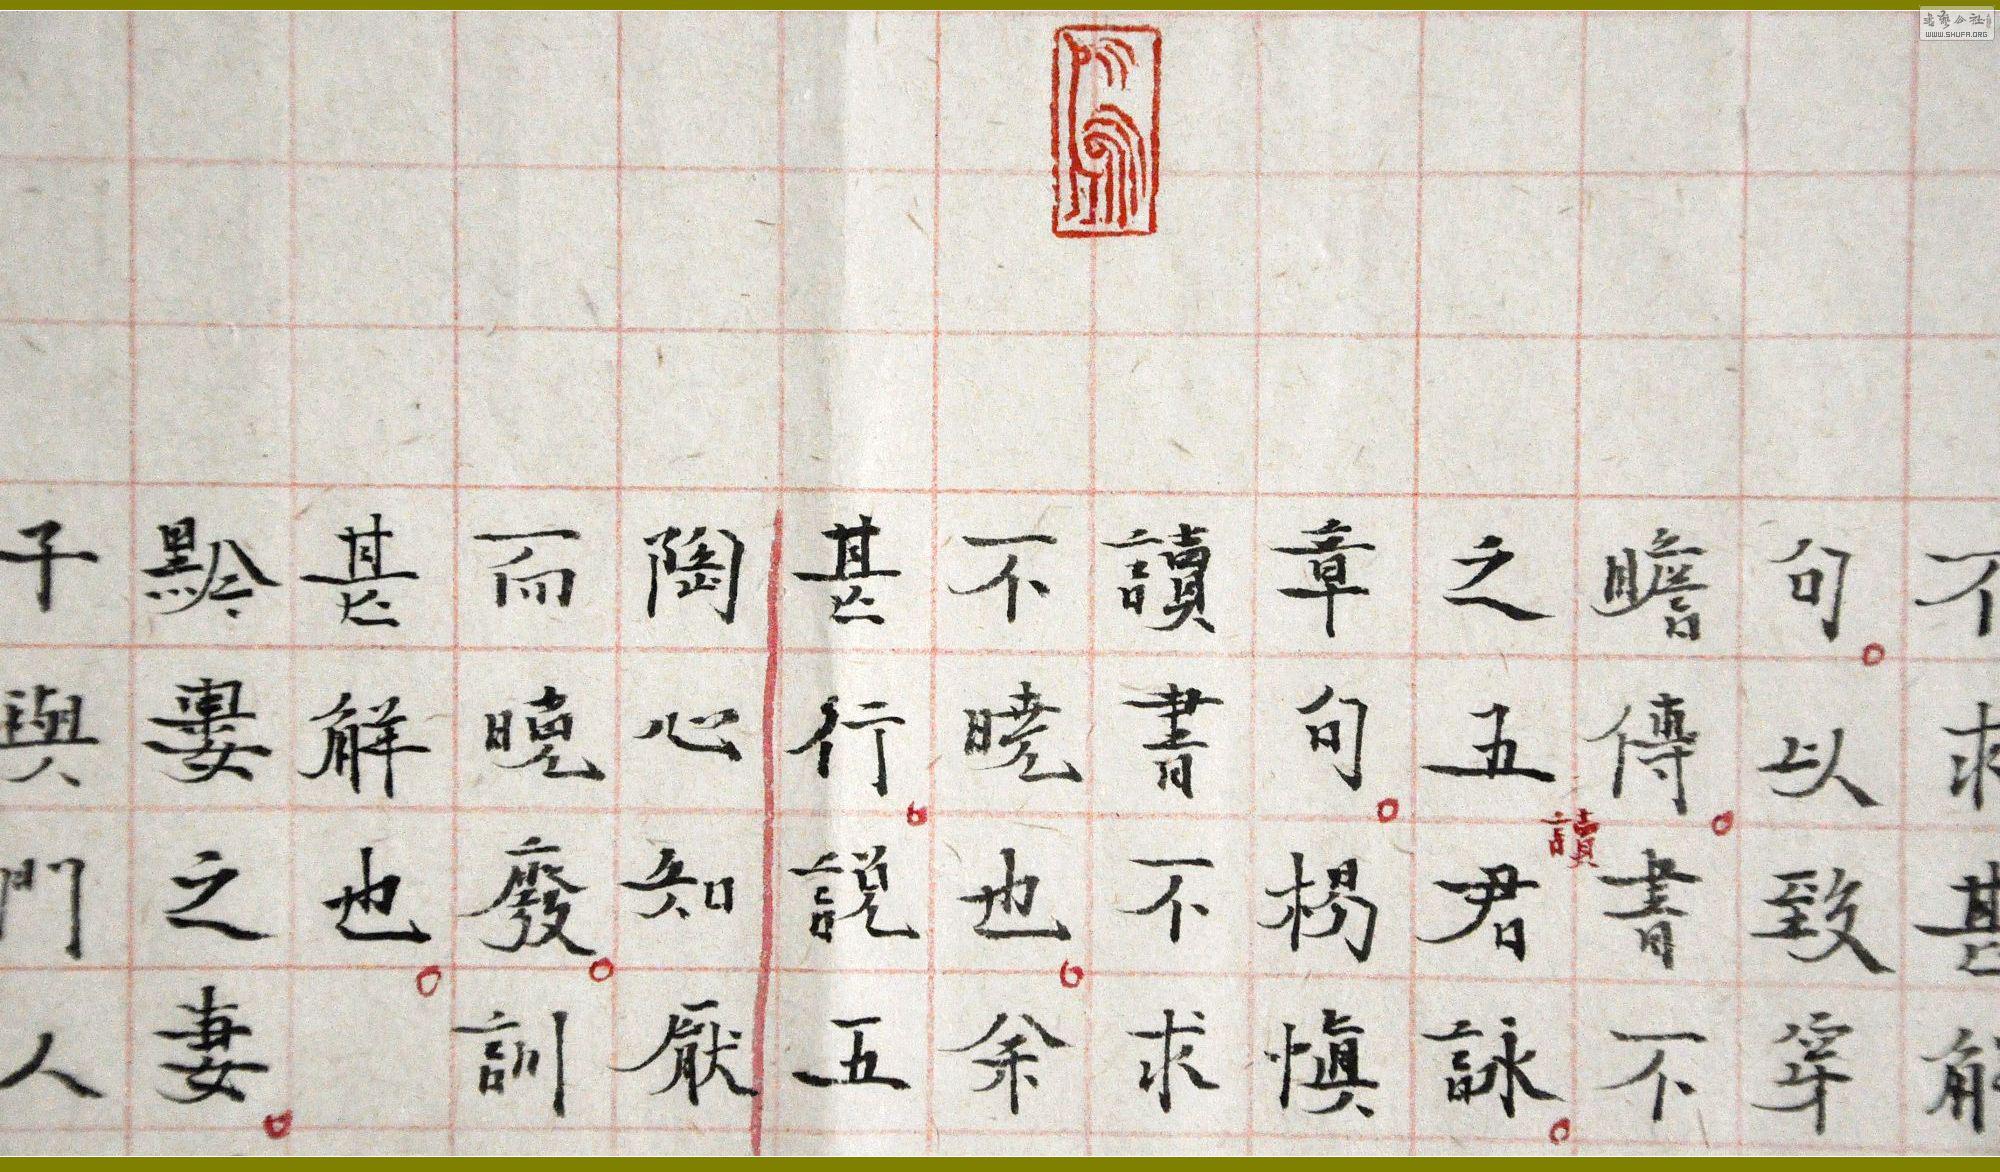 不求甚解
句以致穿
瞻傳書不
讀
之五君詠
章句楊慎
讀書不求
不曉也余
甚行説五
陶心知厭
而曉廢訓
甚解也
黔婁之妻
子與門人
WWW.SHUFA.ORG